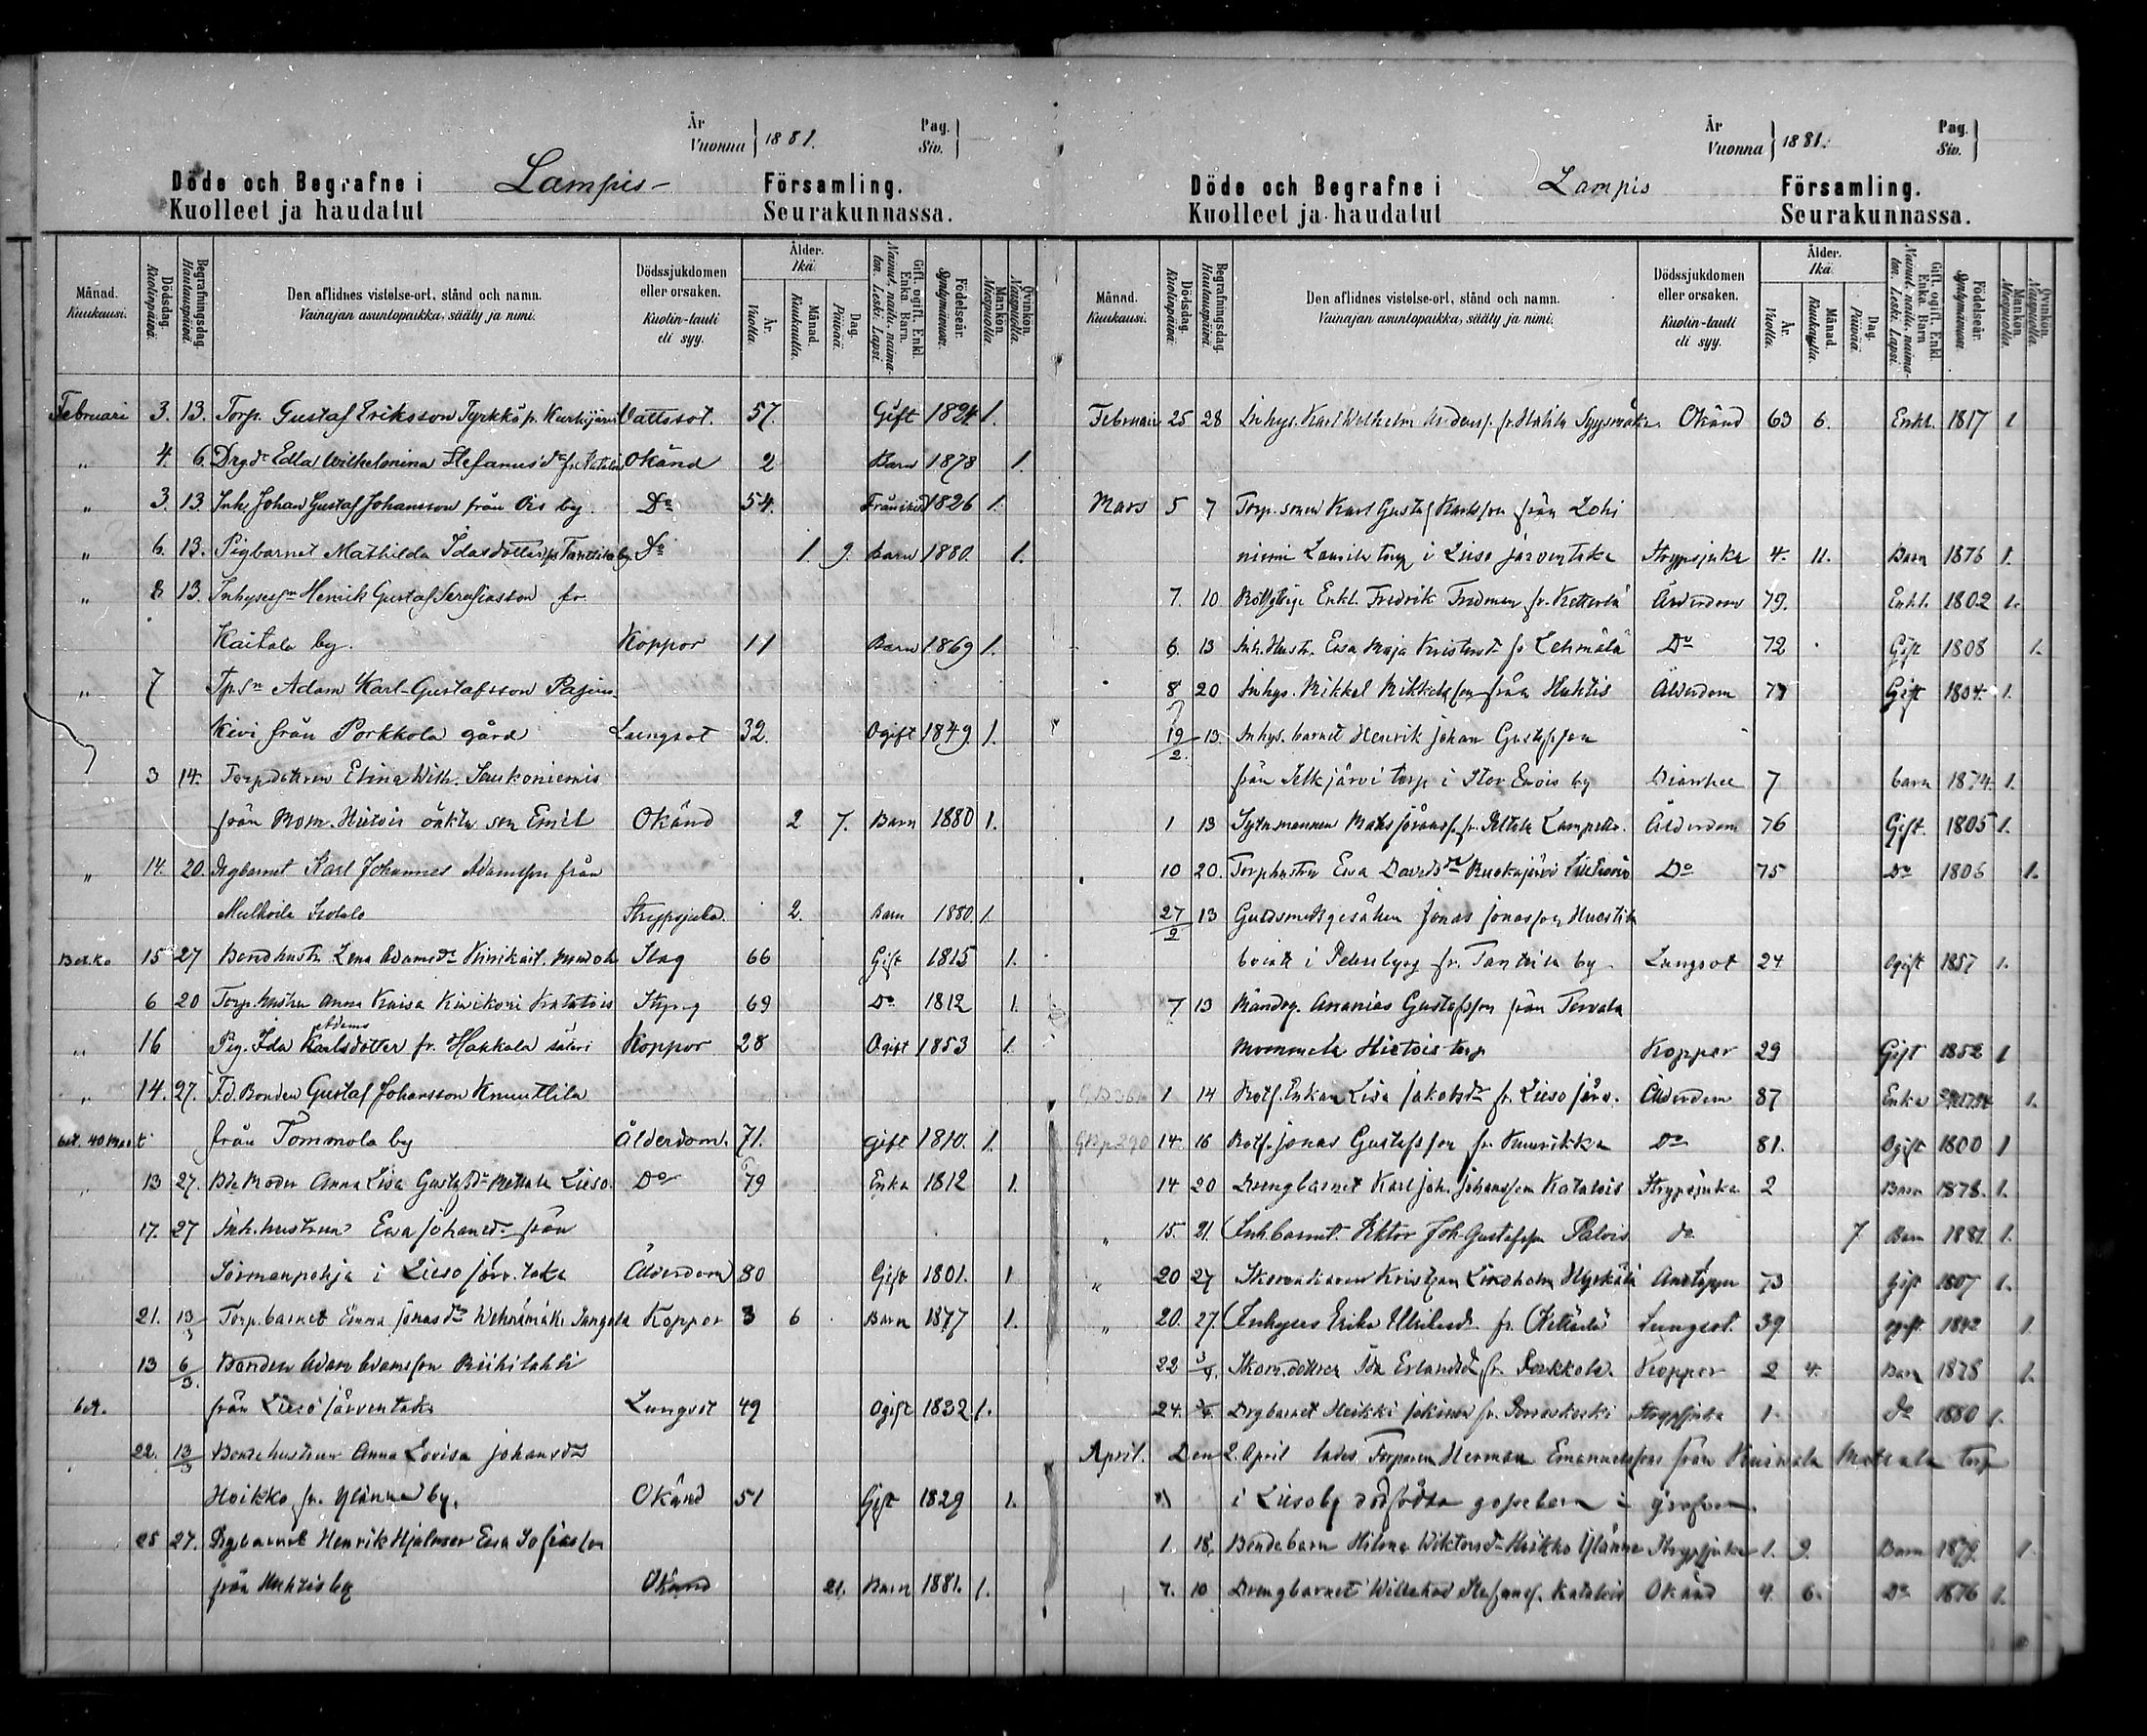 År
Vuonna } 1881.
Pag.
Siv. }
Döde och Begrafne i
Kuolleet ja haudatut
Lampis
Församling.
Seurakunnassa.
Månad.
Kuukausi.
Dödsdag.
Kuolinpäivä.
Begrafningsdag.
Hautauspäivä.
Den aflidnes vistelse-ort, stånd och namn.
Vainajan asuntopaikka, sääty ja nimi.
Dödssjukdomen
eller orsaken.
Kuolin-tauti
eli syy.
Ålder.
Ikä.
År.
Vuotta.
Månad.
Kuukautta.
Dag.
Päivää.
Gift, ogift. Enkl.
Enka. Barn.
Nainut, naitu, naima-
ton. Leski. Lapsi.
Födelseår.
Syntymävuosi.
Mankön.
Miespuolia.
Qvinkön.
Naispuolia.
Februari 3. 13. Torp. Gustaf Eriksson Tyrkkö fr. Kurkijärvi Vattssot. 57. Gift 1824 1.
„ 4. 6. Drgdr Edla Wilhelmina Stefanusdr fr. Okänd 2 Barn 1878 1.
„ 3. 13. Inh. Johan Gustaf Johansson från Ois by Do 54. 1826 1.
„ 6. 13. Pigbarnet Mathilda Idasdotter fr. Tanttila by Do 1. 9. Barn 1880. 1.
„ 8. 13. Inhysesn Henrik Gustaf Serafiasson fr.
Kaitala by. Koppor 11 Barn 1869 1.
„ 7 Tpsn Adam Karl-Gustafsson
Kivi från Porkkola gård Lungsot 32. Ogift 1849. 1.
3 14. Torpdottren Elina Wilh. Saukoniemis
från Mom. Hietois oäkta son Emil Okänd 2 7. Barn 1880 1.
„ 14. 20. Drgbarnet Karl Johannes Adamsson från
Mulkoila Isotalo Strypsjuka. 2. Barn 1880. 1.
15 27 Bondhustr. Lena Adamsdr Slag 66 Gift 1815 1.
6 20 Torp. hustru Anna Kaisa Kivikoni Katalois 69 Do 1812 1.
„ 16 Pig. Ida Adams Karlsdotter fr. Hakkala säteri Koppor 28 Ogift 1853 1.
„ 14. 27. F.d. Bonden Gustaf Johansson Knuuttila
från Tommola by Ålderdom. 71. gift 1810. 1.
„ 13 27. Bde Moder Anna Lisa Gustafsdr Mattala Lieso. Do 79 Enka 1812 1.
17. 27 Inh. hustrun Ewa Johansdr från
Sormenpohja i Lieso järv. taka Ålderdom 80 Gift 1801. 1
21. 13/3 Torp. barnet Emma Jonasdr Koppor 3 6 Barn 1877 1.
13 6/3. Bonden Adam Adamsson Riihilahti
bet. från Lieso järventaka Lungsot 49 Ogift 1832 1.
22. 13/3 Bondehustrun Anna Lovisa Johansdr
Hoikko fr. Ylänne by. Okänd 51 Gift 1829 1.
25 27. Drgbarnet Henrik Hjalmar Ewa Sofiasson
från Huhtis by Okänd 21. Barn 1881. 1.
År
Vuonna } 1881.
Pag.
Siv. }
Döde och Begrafne i
Kuolleet ja haudatut
Lampis
Församling.
Seurakunnassa.
Månad.
Kuukausi.
Dödsdag.
Kuolinpäivä.
Begrafningsdag.
Hautauspäivä.
Den aflidnes vistelse-ort, stånd och namn.
Vainajan asuntopaikka, sääty ja nimi.
Dödssjukdomen
eller orsaken.
Kuolin-tauti
eli syy.
Ålder.
Ikä.
År.
Vuotta.
Månad.
Kuukautta.
Dag.
Päivää.
Gift, ogift. Enkl.
Enka. Barn
Nainut, naitu, naima-
ton. Leski. Lapsi.
Födelseår.
Syntymävuosi.
Mankön.
Miespuolia.
Qvinkön.
Naispuolia.
Februari 25 28 Inhys. Karl Wilhelm fr. Okänd 63 6. Enkl. 1817 1
Mars 5 7 Torp. sonen Karl Gustaf Karlsson från Lohi
niemi torp i Lieso järventaka Strypsjuka 4. 11. Barn 1876 1.
7. 10 Enkl. Fredrik Fredman fr. Ålderdom 79. Enkl. 1802 1.
6. 13 Inh. Hustr. Ewa Maja fr. Lehmälä Do 72 Gift 1808 1.
8 20 Inhys. Mikkel Mikkelsson från Huhtis Ålderdom 77 Gift 1804. 1.
19/2. 13. Inhys. barnet Henrik Johan Gustafsson
från Selkjärvi torp i Stor Evois by Diarrhee 7 barn 1874. 1.
1 13 Sytn. mannen Mats fr. Ålderdom 76 Gift. 1805 1.
10 20. Torphustru Ewa Davidsdr Do 75 Do 1806 1.
27/2 13 Guldsmedsgesällen Jonas Jonasson
boiatt i Petersburg fr. Tanttila by Lungsot 24 Ogift 1857 1.
7 13 Måndrg. Ananias Gustafsson från Tervala
Mommila Hietois torp Koppor 29 Gift 1852 1
1 14 Rotf. Enkan Lisa Jakobsdr fr. Lieso järv. Ålderdom 87 Enka 1.
14. 16 Rotf. Jonas Gustafsson fr. Do 81. Ogift 1800 1
14 20 Drengbarnet Karl Joh. Johansson Katalois Strypsjuka 2 Barn 1878. 1.
„ 15. 21. Inh. barnet. Viktor Joh. Gustafsson Palois do 7 Barn 1881. 1.
„ 20 27 Kristian Lindholm 73 Gift 1807 1.
„ 20. 27. Inhyses Erika Ulrikasdr. fr. Lungsot. 39 ogift 1842 1.
22 Skom. dottren Ida Erlandsdr fr. Porkkola. Koppor 2 4. Barn 1878 1.
24. Drgbarnet Heikki fr. Porraskoski Strypsjuka 1. do 1880 1.
April. Den 2. April lades Torparen Herman Emanuelssons från torp
i Lieso by dödfödda gossebarn i grafven.
1. 18. Bondebarn Hilma Wiktorsdr Hoikko Ylänne Strypsjuka 1. 9. Barn 1879. 1.
7. 10 Drengbarnet Katalois Okänd 4. 6. Do 1876 1.